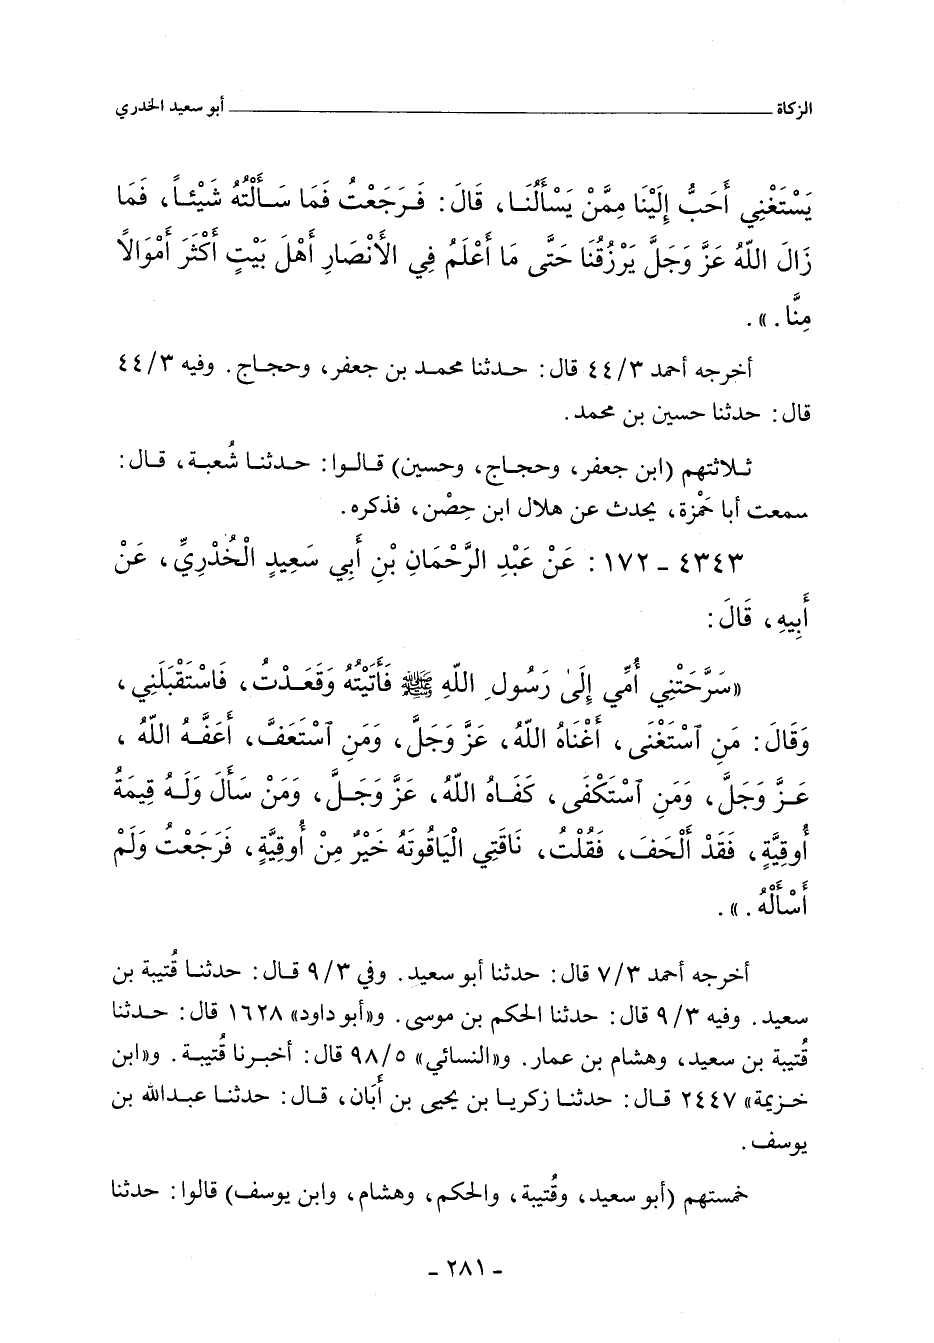 الزكاة ــــــــــــــــــــ أبو سعيد الخدري
يَسْتَغْنِي أَحَبُّ إِلَيْنَا مِمَّنْ يَسْأَلُنَـا، قَالَ: فَـرَجَعْتُ فَمَا سَـأَلْتُهُ شَيْئـاً، فَمَا
زَالَ اللهُ عَزَّ وَجَلَّ يَرْزُقُنَا حَتَّى مَا أَعْلَمُ فِي الأَنْصَارِ أَهْلَ بَيْتٍ أَكْثَرَ أَمْوَالاً
مِنَّا.».
أخرجه أحمد ٤٤/٣ قال: حـدثنا محمـد بن جعفر، وحجـاج. وفيه ٤٤/٣
قال: حدثنا حسين بن محمد.
ثـلاثتهم (ابن جعفر، وحجـاج، وحسين) قـالـوا: حـدثنـا شُعبـة، قـال:
سمعت أبا حَمْزة، يحدث عن هلال ابن حِصْن، فذكره.
٤٣٤٣ ـ ١٧٢: عَنْ عَبْدِ الرَّحْمَانِ بْنِ أَبِي سَعِيدٍ الْخُدْرِيِّ، عَنْ
أَبِيهِ، قَالَ:
«سَرَّحَتْنِي أُمِّي إِلَىٰ رَسُولِ اللهِ ﷺ فَأَتَيْتُهُ وَقَعَـدْتُ، فَاسْتَقْبَلَنِي،
وَقَالَ: مَنِ ٱسْتَغْنَى، أَغْنَاهُ اللهُ، عَزَّ وَجَلَّ، وَمَنِ ٱسْتَعَفَّ، أَعَفَّـهُ اللهُ،
عَـزَّ وَجَلَّ، وَمَنِ ٱسْتَكْفَى، كَفَـاهُ اللهُ، عَزَّ وَجَـلَّ، وَمَنْ سَأَلَ وَلَـهُ قِيمَةُ
أُوقِيَّةٍ، فَقَدْ أَلْحَفَ، فَقُلْتُ، نَاقَتِي الْيَاقُوتَهُ خَيْرٌ مِنْ أُوقِيَّةٍ، فَرَجَعْتُ وَلَمْ
أَسْأَلْهُ.».
أخرجه أحمد ٧/٣ قال: حدثنا أبو سعيد. وفي ٩/٣ قـال: حدثنـا قُتيبة بن
سعيد. وفيه ٩/٣ قال: حدثنا الحكم بن موسى. و«أبو داود» ١٦٢٨ قال: حـدثنا
قُتيبة بن سعيد، وهشام بن عمار. و«النسائي» ٩٨/٥ قال: أخبـرنا قُتيبـة. و«ابن
خـزيمة» ٢٤٤٧ قـال: حدثنـا زكريـا بن يحيى بن أَبَان، قـال: حدثنـا عبـدالله بن
يوسف.
خمستهم (أبو سعيد، وقُتيبة، والحكم، وهشام، وابن يوسف) قالوا: حدثنا
ـ ٢٨١ ـ